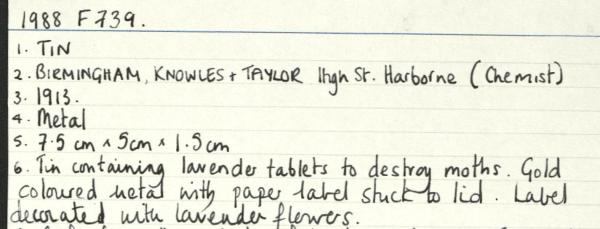 1988 F739.
1. TIN
2. BIRMINGHAM, KNOWLES + TAYLOR High St. Harborne (Chemist)
3. 1913.
4. Metal
5. 7.5 cm x 5cm x 1.5cm
6. Tin containing lavender tablets to destroy moths. Gold
coloured metal with paper label stuck to lid. Label
decorated with lavender flowers.